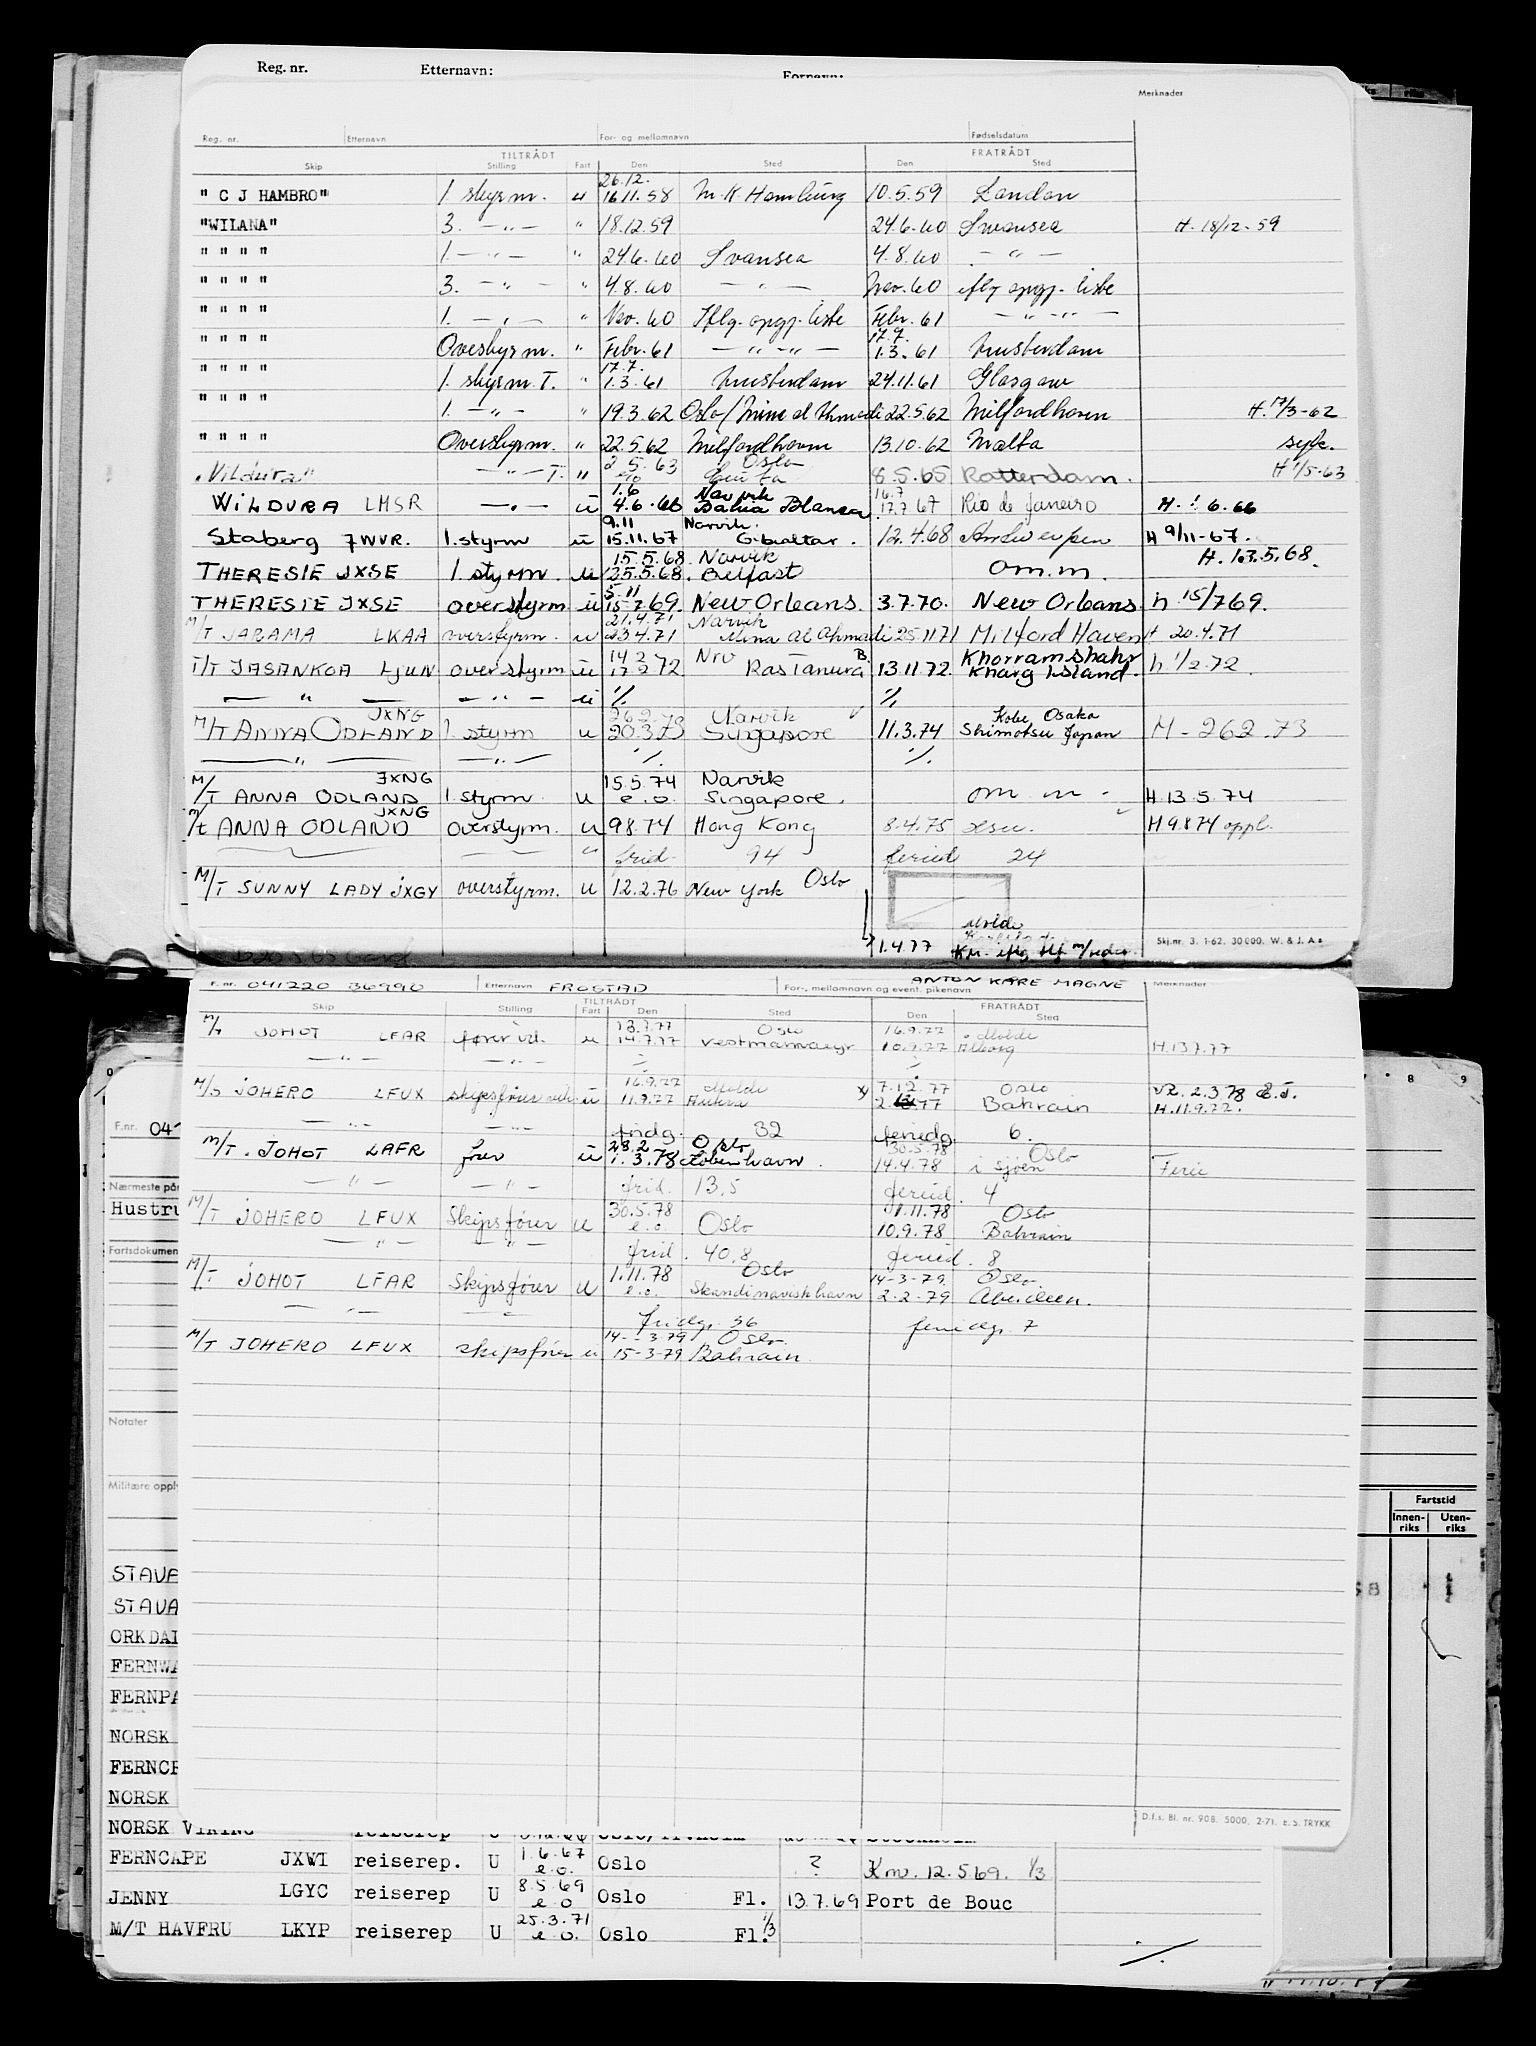 Reg. nr. Etternavn: Fornavn:
Merknader
Reg. nr. Etternavn For- og mellomnavn Fødselsdatum
TILTRÅDT FRATRÅDT
Skip Stilling Fart Den Sted Den Sted
26.12.
"C J HAMBRO" 1. styrm. u 16.11.58 M.K. Hamburg 10.5.59 London
"WILANA" 3. -"- " 18.12.59 24.6.60 Swansea H. 18/12-59
" " " " 1. -"- " 24.6.60 Svansea 4.8.60 -"-
" " " " 3. -"- " 4.8.60 -"- Nov. 60 iflg. opgj. liste
" " " " 1. -"- " Nov. 60 Iflg. opgj. liste Febr. 61 -"-"-
17.7.
" " " " Overstyrm. " Febr. 61 -"-"- 1.3.61 Amsterdam
17.7.
" " " " 1. styrm. T. " 1.3.61 Amsterdam 24.11.61 Glasgow
" " " " 1. -"- " 19.3.62 Oslo/Mina al Ahmadi 22.5.62 Milfordhaven H. 17/3-62
" " " " Overstyrm. " 22.5.62 Milfordhavn 13.10.62 Malta syk.
2.5.63 Oslo
"Vildura" -"- T. " e/o Ceuta 8.5.65 Rotterdam. H 1/5-63
1.6 Narvik 16.7
WILDURA LMSR -"- u 4.6.66 Bahia Blanca 17.7 67 Rio de Janeiro H. 1. 6.66
9.11 Narvik.
Staberg JWVR. 1. styrm u 15.11.67 Gibraltar. 12.4.68 Antwerpen H 9/11-67.
15.5.68. Narvik H. 13.5.68.
THERESIE JXSE 1. styrm. u 25.5.68. Belfast om.m.
5-11
THERESIE JXSE overstyrm. u 15-7.69. New Orleans. 3.7.70. New Orleans. h. 15/7 69.
21.4.71 Narvik
M/T JARAMA LKAA overstyrm. u 23.4.71 Mina Al Ahmadi 25 11 71 Milford Haven H 20.4.71
14 2 Nrv B. Khorramshahr
T/T JASANKOA LJUN overstyrm u 17.2 72 Ras Tanura 13.11 72. Kharg Island. h. 1/2.72.
-"- -"- u % %
JXNG 26.2.73 Narvik Kobe, Osaka
M/T ANNA ODLAND 1. styrm u 20.3.73 Singapore 11.3.74 Shimotsu Japan H - 26 2.73
-"- -"- % %
JXNG 15.5.74 Narvik
M/T ANNA ODLAND 1. styrm. u e.o. Singapore. om m. H 13.5.74
JXNG
M/t ANNA ODLAND overstyrm. u 9.8.74 Hong Kong 8.4.75 H 9.8 74 oppl.
" frid. 94 feried 24
M/T SUNNY LADY JXGY overstyrm. u 12.2.76 New York Oslo
Molde
1.4.77 Km. iflg tlf m/rederi
Skj.nr. 3. 1-62. 30000. W. & J. A s
F.nr. 041220 36996 Etternavn FROSTAD For-, mellomnavn og event. pikenavn ANTON KÅRE MAGNE Merknader
TILTRÅDT FRATRÅDT
Skip Stilling Fart Den Sted Den Sted
13.7.77 Oslo 16.9.77 Molde
M/T JOHOT LFAR fører vik. u 14.7.77 Vestmannaeyr 10.9.77 Ålborg H.13 7.77
-"- -"- % %
16.9.77 Molde 7.12.77 Oslo
M/S JOHERO LFUX skipsfører vik u 11.9.77 Aukra x 2. 77 Bahrain H. 11.9.77.
-"- -"- fridg. 32 feriedg. 6.
28.2 Oslo 30.5.78 Oslo
M/T. JOHOT LAFR fører u 1.3.78 København. 14.4.78 i sjøen Ferie
-"- -"- frid. 13,5 feried. 4
30.5.78 1.11.78 Oslo
M/T JOHERO LFUX Skipsfører u e.o. Oslo 10.9.78 Bahrain
-"- -"- frid. 40,8 feried. 8
1.11.78 Oslo 14-3-79. Oslo.
M/T JOHOT LFAR Skipsfører u e.o. Skandinaviskhavn 2-2-79 Aberdeen.
-"- -"- fridgr. 36 feriedgr. 7
14-3-79 Oslo.
M/T JOHERO LFUX skipsfører u 15-3-79 Bahrain.
D.f.s. Bl. nr. 908. 5000. 2-71. E.S. TRYKK
F.nr. 04
Nærmeste på
Hustru
Fartsdokumen
Notater
Militære opply
Fartstid
Innen-riks Uten-riks
STAVA
STAVA
ORKDAL
FERNWA
FERNPA
NORSK
FERNCR
NORSK
NORSK VIKING reiserep U
FERNCAPE JXWI reiserep. U 1.6.67 e.o. Oslo ? Km. 12.5.69. 1/3
JENNY LGYC reiserep U 8.5.69 e.o Oslo Fl. 13.7.69 Port de Bouc
M/T HAVFRU LKYP reiserep U 25.3.71 e.o. Oslo Fl. 1/3